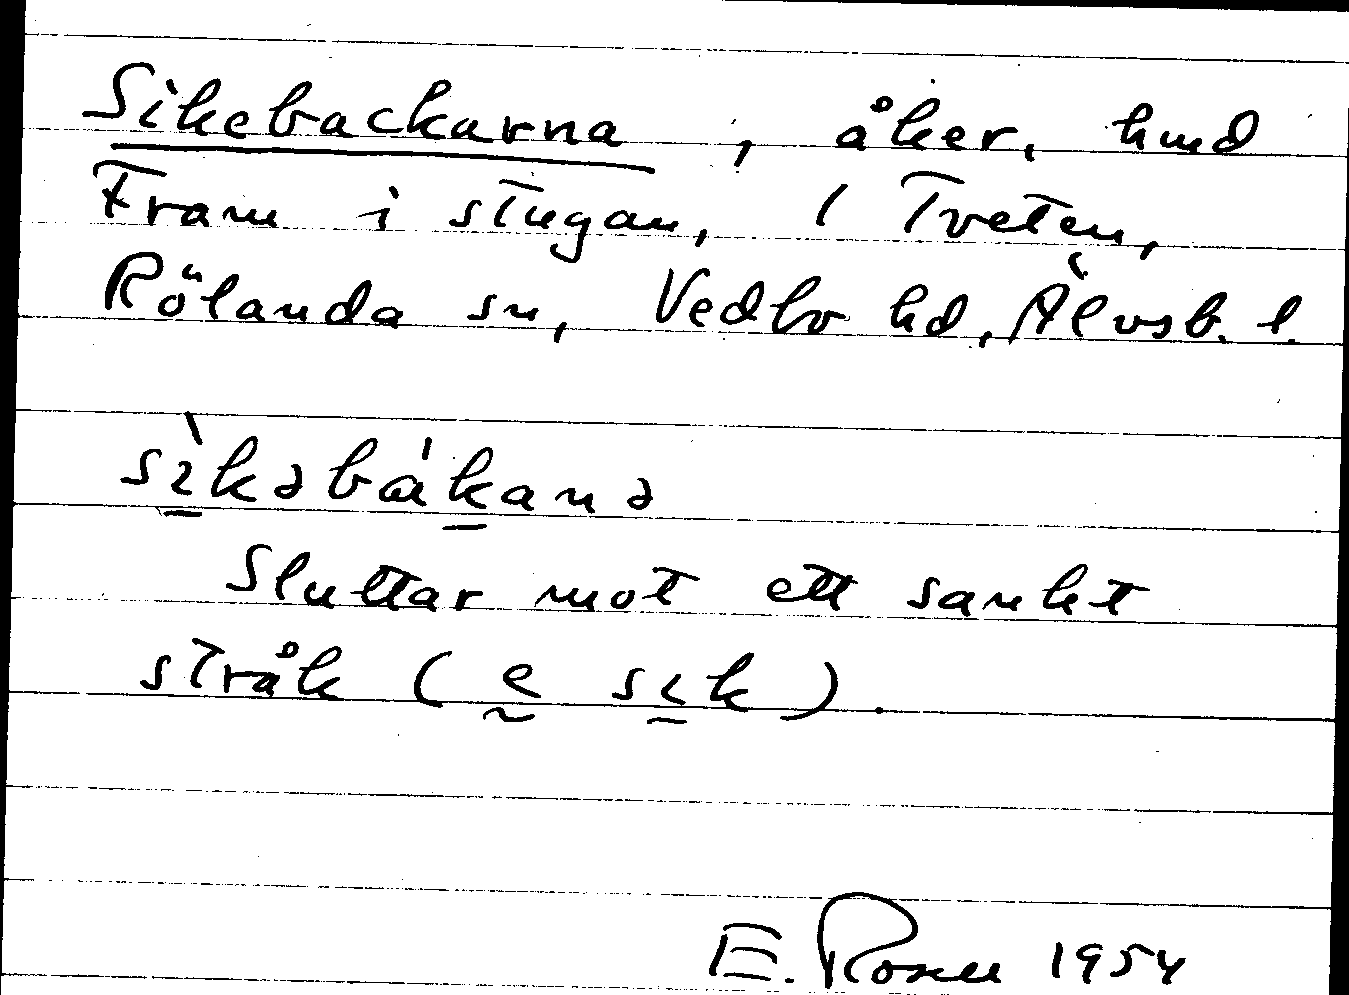 Sikebackarna, åker, hmd
Fram i stugan, 1 Tveten,
Rölanda sn, Vedbo hd, Älvsb. l.
sìkəbákanə
Sluttar mot ett sankt
stråk (e sık).
E. Rosell 1954